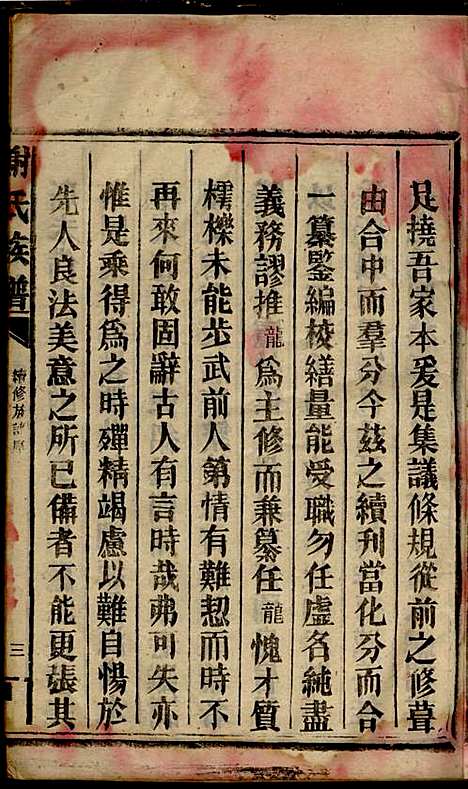 足撓吾家本爰是集議條規從前之修葺
由合中而羣分今茲之續刊當化分而合
纂鑒編校繕量能受職勿任虛名純盡
義務謬推龍為主修而兼纂任龍愧才質
樗櫟未能步武前人第情有難恝而時不
再來何敢固辭古人有言時哉弗可失亦
惟是乘得為之時殫精竭慮以難自惕於
先人良法美意之所已備者不能更張其
謝氏族譜
修族譜序
三